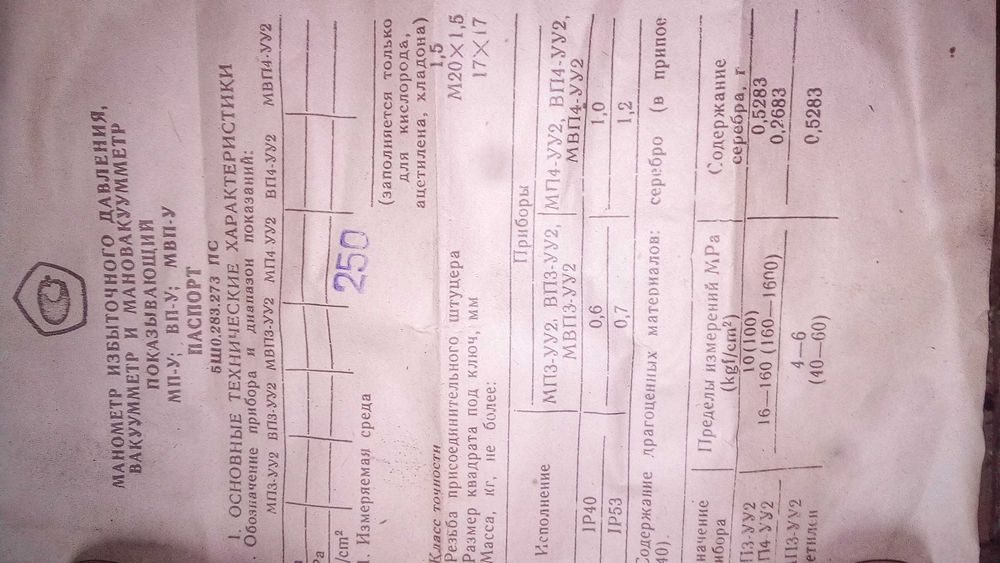 МАНОМЕТР ИЗБЫТОЧНОГО ДАВЛЕНИЯ,
ВАКУУММЕТР И МАНОВАКУУММЕТР
ПОКАЗЫВАЮЩИЙ
МП-У; ВП-У; МВП-У
ПАСПОРТ
5Ш0.283.273 ПС
1. ОСНОВНЫЕ ТЕХНИЧЕСКИЕ ХАРАКТЕРИСТИКИ
. Обозначение прибора и диапазон показаний:
МП3-УУ2 ВП3-УУ2 МВП3-УУ2 МП4-УУ2 ВП4-УУ2 МВП4-УУ2
/cm² 250
. Измеряемая среда
(заполняется только
для кислорода,
ацетилена, хладона)
Класс точности 1,5
Резьба присоединительного штуцера М20×1,5
Размер квадрата под ключ, мм 17×17
Масса, кг, не более:
Исполнение Приборы
МП3-УУ2, ВП3-УУ2, МВП3-УУ2 МП4-УУ2, ВП4-УУ2, МВП4-УУ2
IP40 0,6 1,0
IP53 0,7 1,2
Содержание драгоценных материалов: серебро (в припое
40).
начение
ибора Пределы измерений МРа (kgf/cm²) Содержание серебра, г
П3-УУ2 10 (100) 0,5283
П4-УУ2 16—160 (160—1600) 0,2683
П3-УУ2 4—6 0,5283
етилен (40—60)